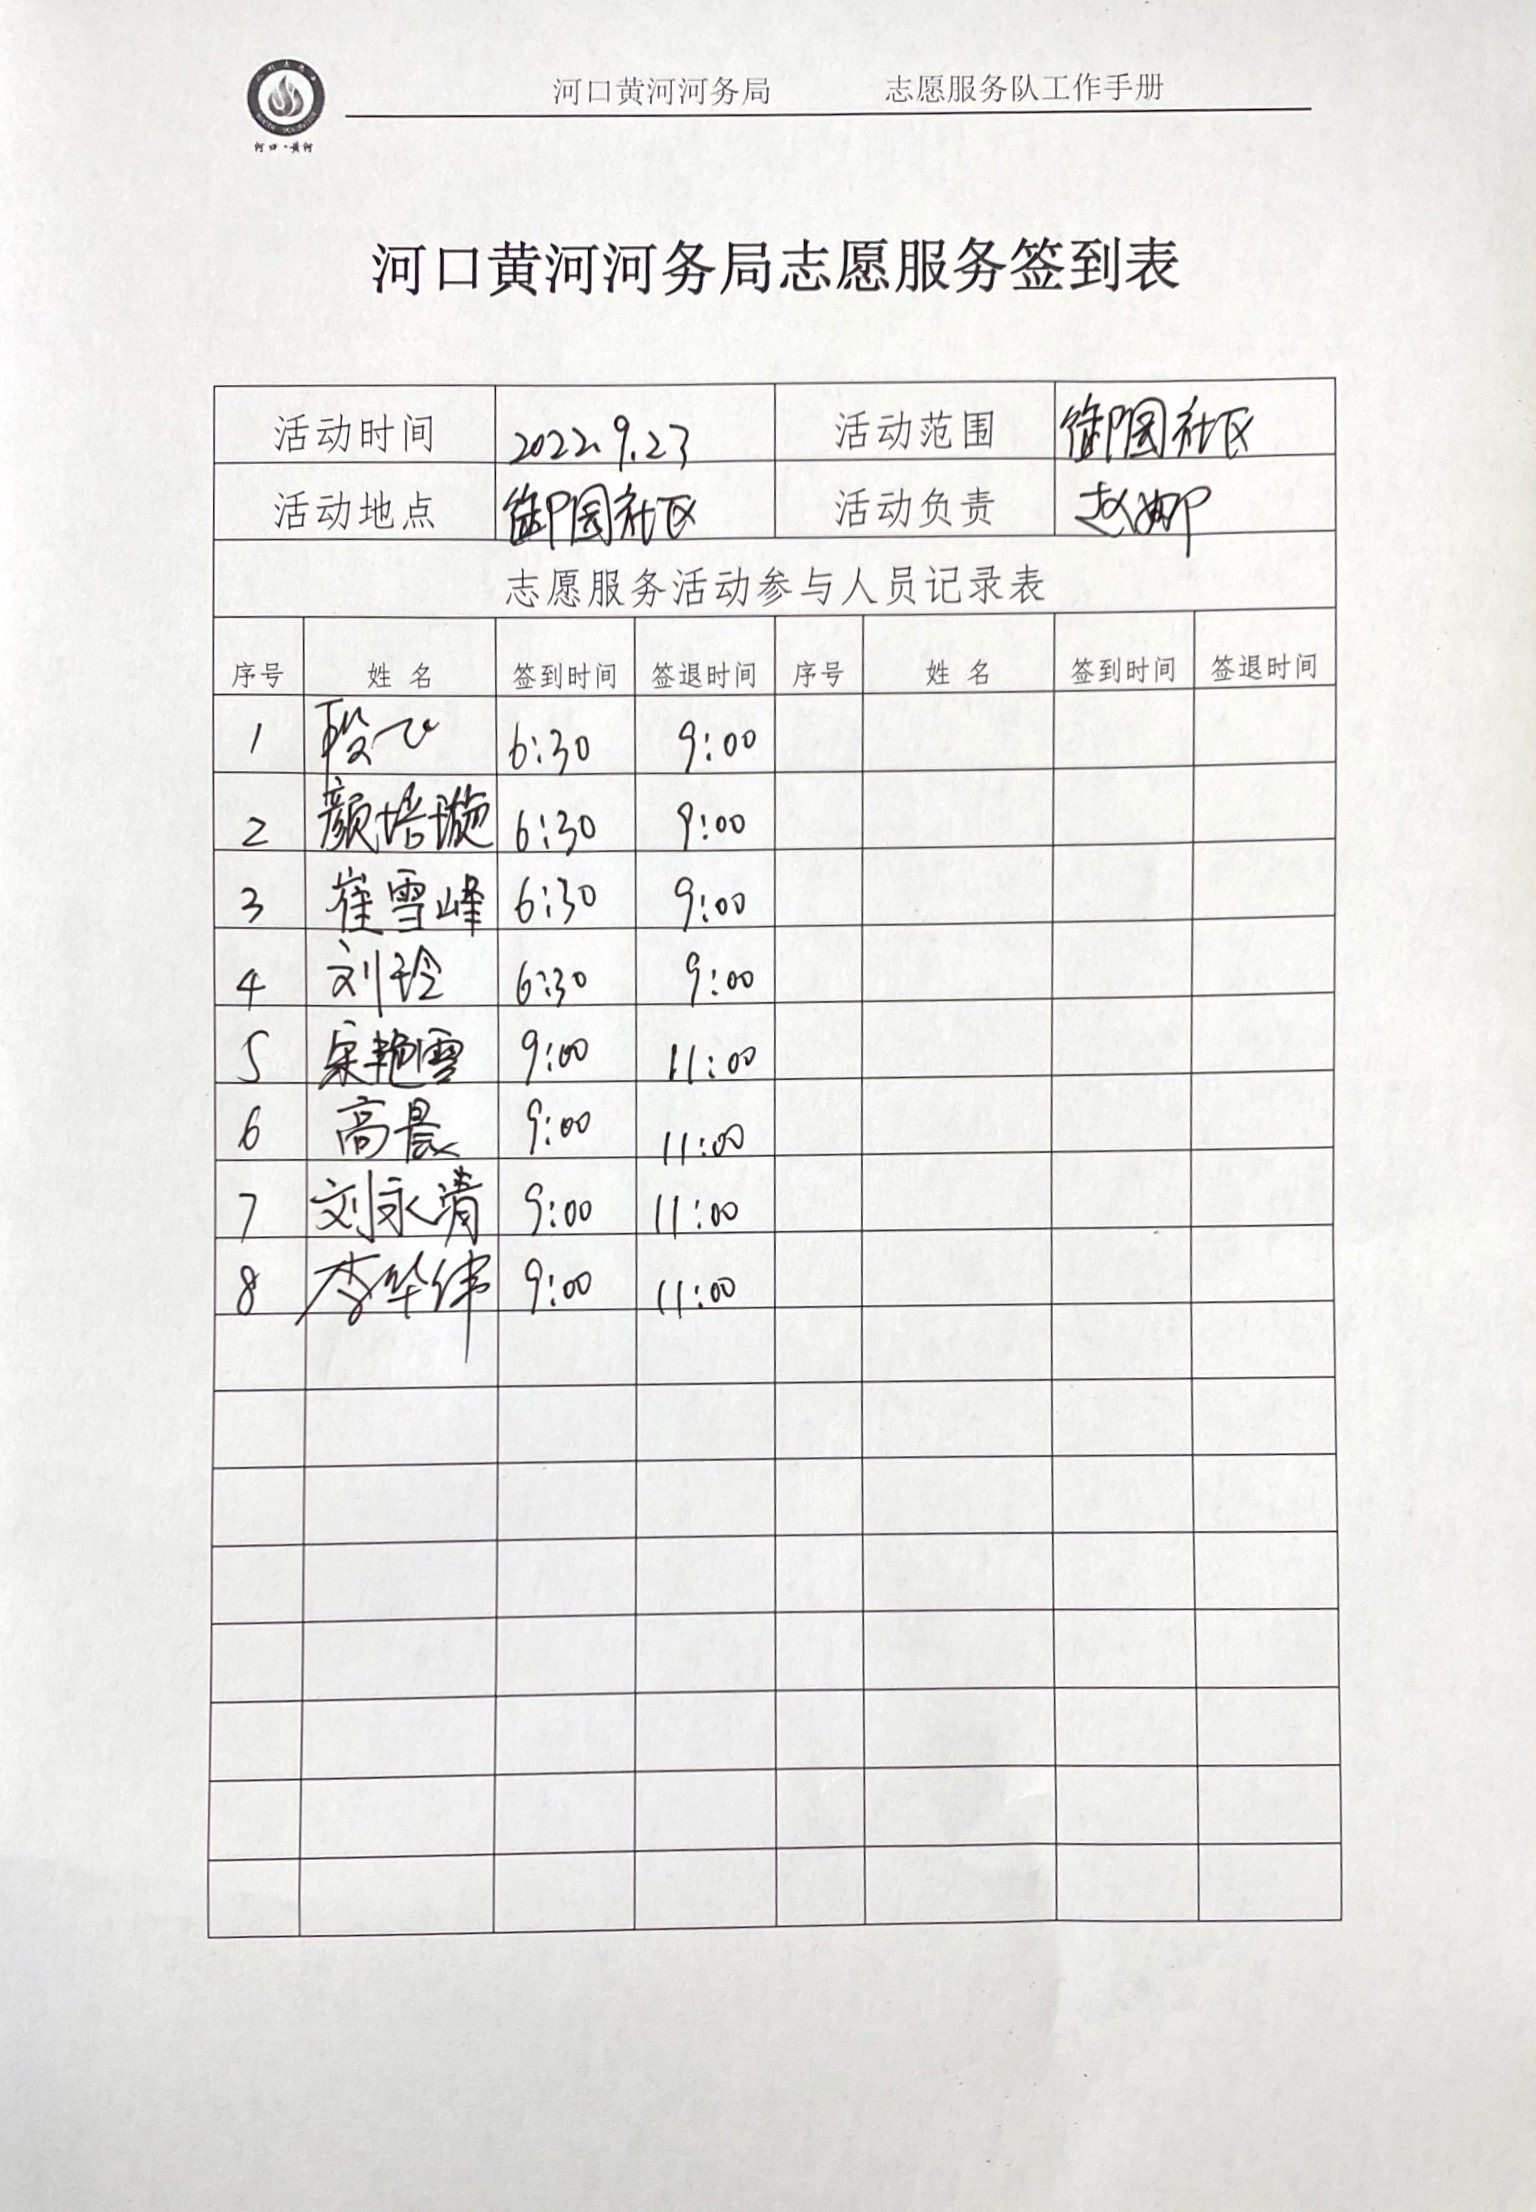 河口黄河河务局 志愿服务队工作手册
河口·黄河
河口黄河河务局志愿服务签到表
活动时间 2022.9.23 活动范围 御园社区
活动地点 御园社区 活动负责 赵娜
志愿服务活动参与人员记录表
序号 姓 名 签到时间 签退时间 序号 姓 名 签到时间 签退时间
1 段飞 6:30 9:00
2 颜培璇 6:30 9:00
3 崔雪峰 6:30 9:00
4 刘玲 6:30 9:00
5 宋艳雪 9:00 11:00
6 高晨 9:00 11:00
7 刘永清 9:00 11:00
8 李华伟 9:00 11:00